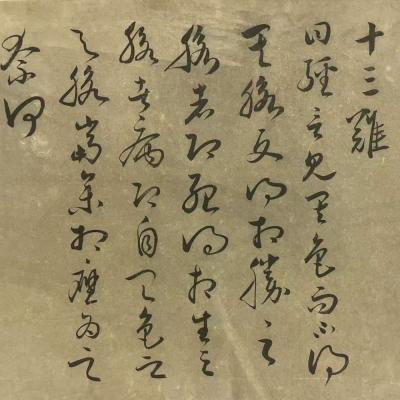 十三難
曰經言見其色而不得
其脉反得相勝之
脉者即死得相生之
脉者病即自已色之
与脉當參相應為之
奈何